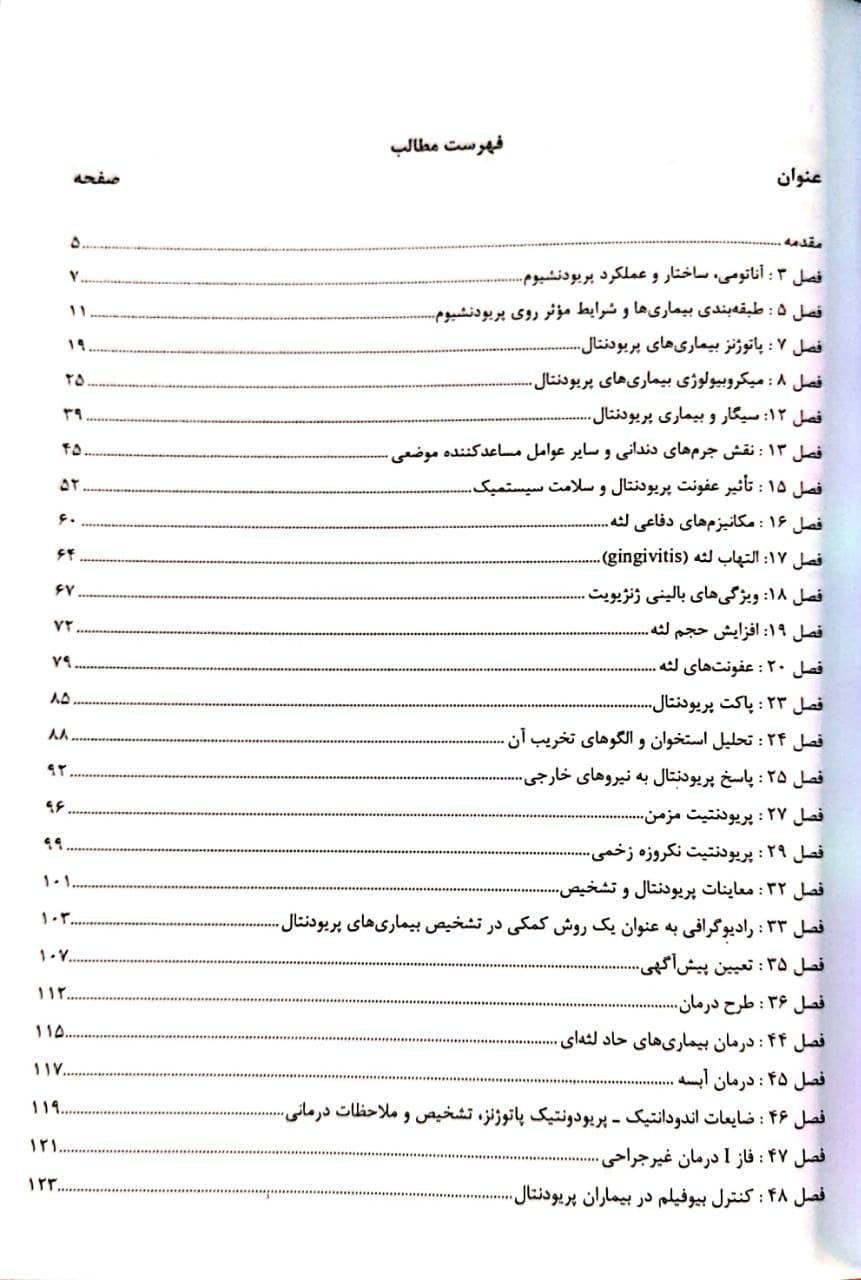 فهرست مطالب
عنوان صفحه
مقدمه ........ ۵
فصل ۳ : آناتومی، ساختار و عملکرد پریودنشیوم ........ ۷
فصل ۵ : طبقه‌بندی بیماری‌ها و شرایط مؤثر روی پریودنشیوم ........ ۱۱
فصل ۷ : پاتوژنز بیماری‌های پریودنتال ........ ۱۹
فصل ۸ : میکروبیولوژی بیماری‌های پریودنتال ........ ۲۵
فصل ۱۲: سیگار و بیماری پریودنتال ........ ۳۹
فصل ۱۳ : نقش جرم‌های دندانی و سایر عوامل مساعدکننده موضعی ........ ۴۵
فصل ۱۵ : تأثیر عفونت پریودنتال و سلامت سیستمیک ........ ۵۲
فصل ۱۶ : مکانیزم‌های دفاعی لثه ........ ۶۰
فصل ۱۷: التهاب لثه (gingivitis) ........ ۶۴
فصل ۱۸: ویژگی‌های بالینی ژنژیویت ........ ۶۷
فصل ۱۹: افزایش حجم لثه ........ ۷۲
فصل ۲۰ : عفونت‌های لثه ........ ۷۹
فصل ۲۳ : پاکت پریودنتال ........ ۸۵
فصل ۲۴ : تحلیل استخوان و الگوهای تخریب آن ........ ۸۸
فصل ۲۵ : پاسخ پریودنتال به نیروهای خارجی ........ ۹۲
فصل ۲۷ : پریودنتیت مزمن ........ ۹۶
فصل ۲۹ : پریودنتیت نکروزه زخمی ........ ۹۹
فصل ۳۲ : معاینات پریودنتال و تشخیص ........ ۱۰۱
فصل ۳۳ : رادیوگرافی به عنوان یک روش کمکی در تشخیص بیماری‌های پریودنتال ........ ۱۰۳
فصل ۳۵ : تعیین پیش‌آگهی ........ ۱۰۷
فصل ۳۶ : طرح درمان ........ ۱۱۲
فصل ۴۴ : درمان بیماری‌های حاد لثه‌ای ........ ۱۱۵
فصل ۴۵ : درمان آبسه ........ ۱۱۷
فصل ۴۶ : ضایعات اندودانتیک ـ پریودونتیک پاتوژنز، تشخیص و ملاحظات درمانی ........ ۱۱۹
فصل ۴۷ : فاز I درمان غیرجراحی ........ ۱۲۱
فصل ۴۸ : کنترل بیوفیلم در بیماران پریودنتال ........ ۱۲۳